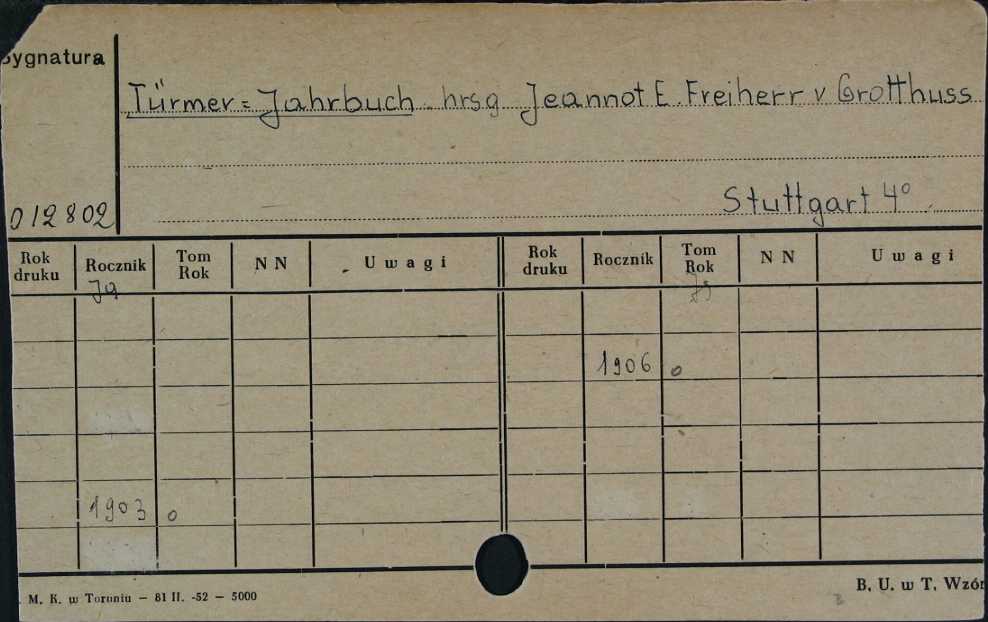 Sygnatura
Türmer=Jahrbuch hrsg Jeannot E. Freiherr v Grotthuss
Stuttgart 4°
012802
Rok druku Rocznik Tom Rok N N Uwagi Rok druku Rocznik Tom Rok N N Uwagi
Jg Jg
1906 o
1903 o
M. K. w Toruniu — 81 II. -52 — 5000
B. U. w T. Wzór